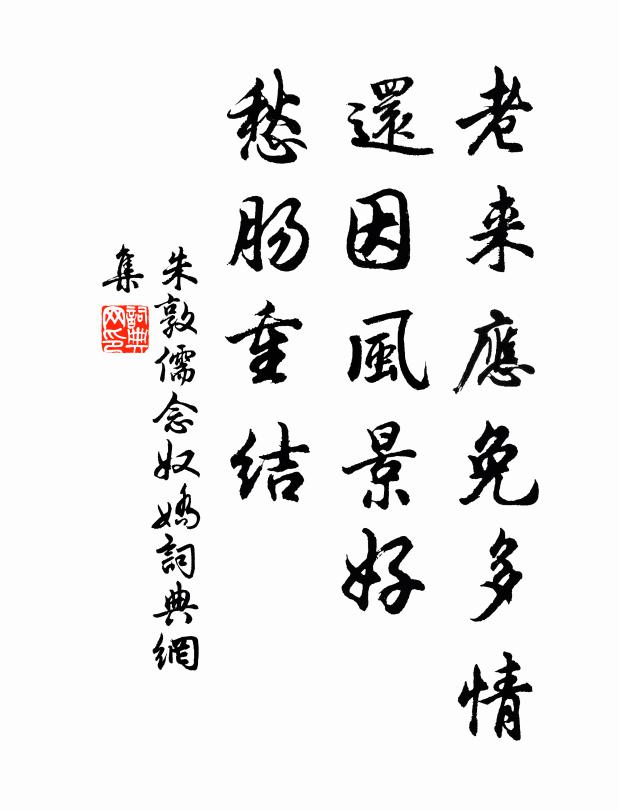 老来應免多情
還因風景好
愁肠重结
朱敦儒念奴嬌詞典網
集
詞典
网印